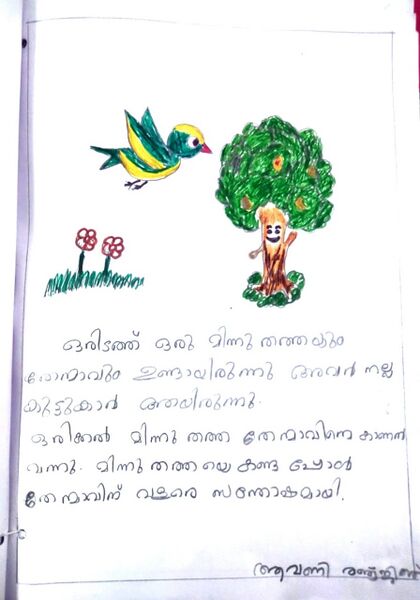 ഒരിടത്ത് ഒരു മിന്നു തത്തയും
തേന്മാവും ഉണ്ടായിരുന്നു അവർ നല്ല
കൂട്ടുകാർ ആയിരുന്നു.
ഒരിക്കൽ മിന്നു തത്ത തേന്മാവിനെ കാണൻ
വന്നു. മിന്നു തത്തയെ കണ്ട പ്പോൾ
തേന്മാവിന് വളരെ സന്തോഷമായി.
ആവണി രഞ്ജിത്ത്